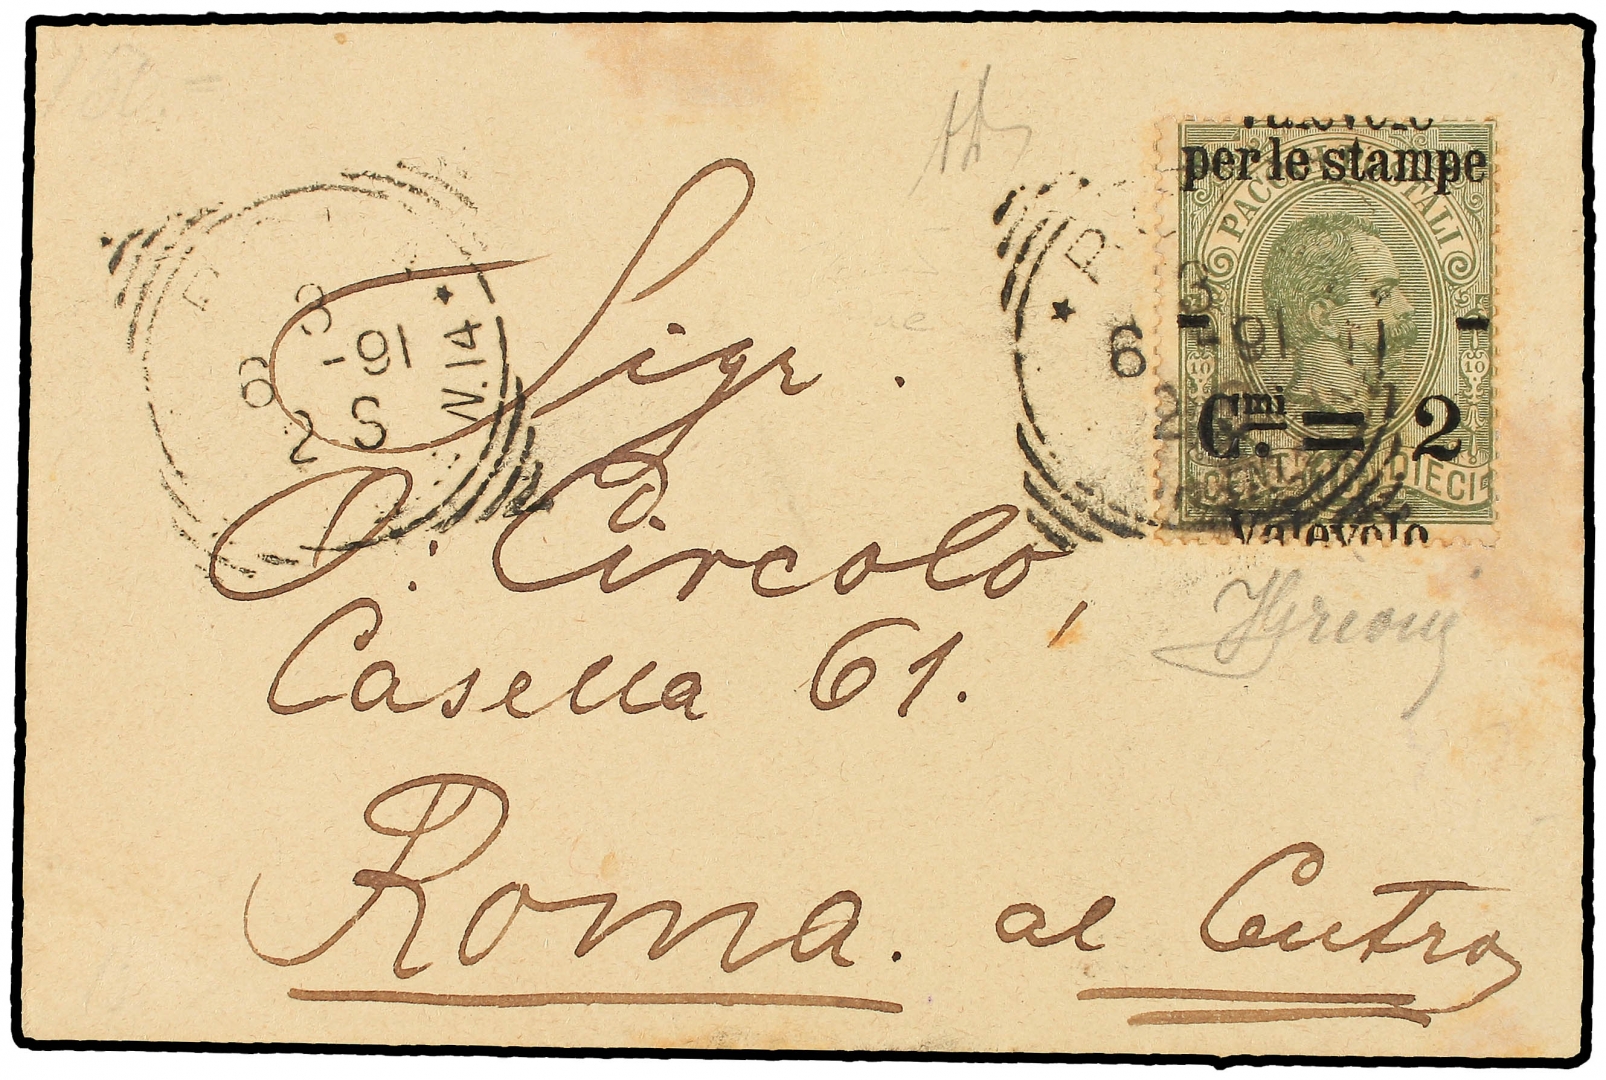 Valevole
per le stampe
PACCHI POSTALI
10 10
Cmi. = 2
CENTESIMI DIECI
Valevole
6 3
-91
2 S
N.14
6 3
-91
2 S
Sigr.
D. Circolo,
Casella 61.
Roma. al Centro